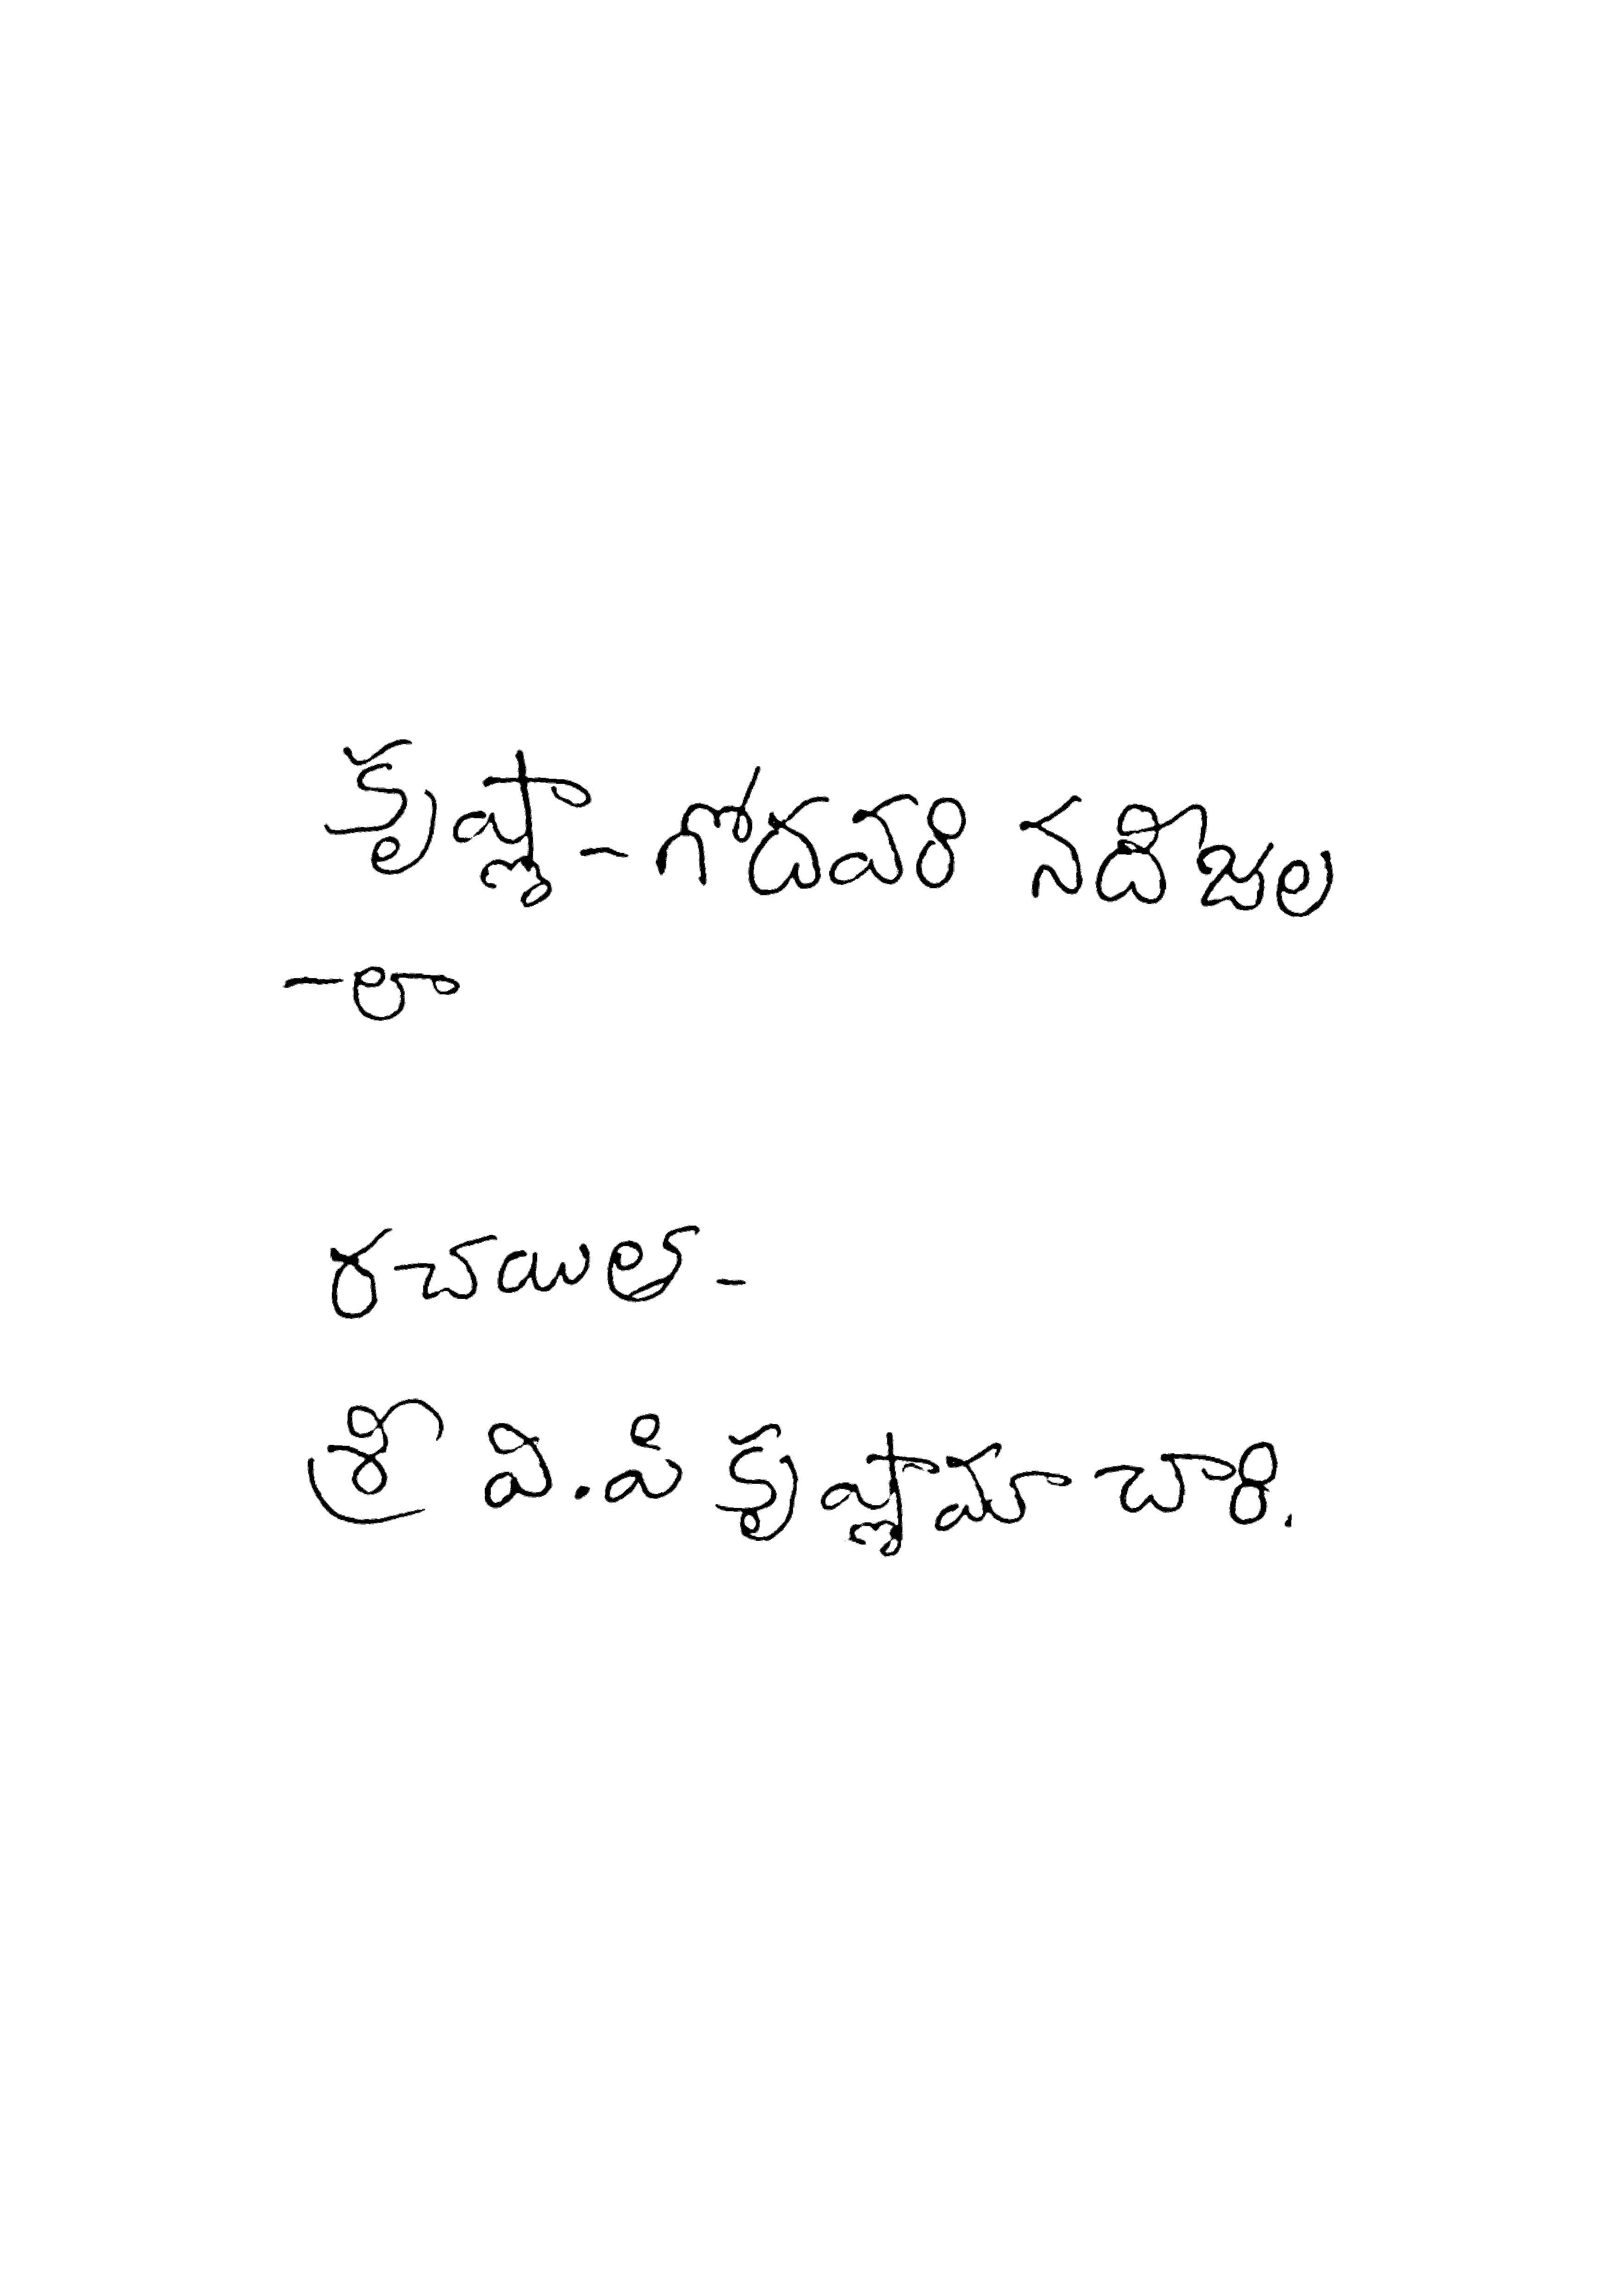 కృష్ణా-గోదవరి నదీజల
-లా
రచయిత -
శ్రీ వి.పి కృష్ణామాచారి.